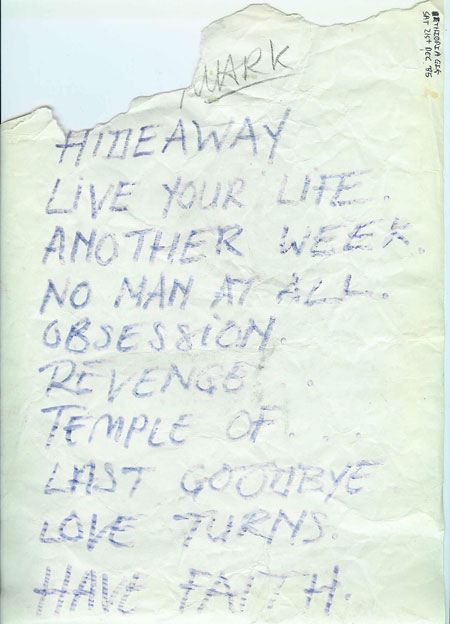 ETHIOPIA GIG
SAT 21ST DEC '85
MARK
HIDEAWAY
LIVE YOUR LIFE.
ANOTHER WEEK.
NO MAN AT ALL.
OBSESSION.
REVENGE.
TEMPLE OF...
LAST GOODBYE.
LOVE TURNS.
HAVE FAITH.